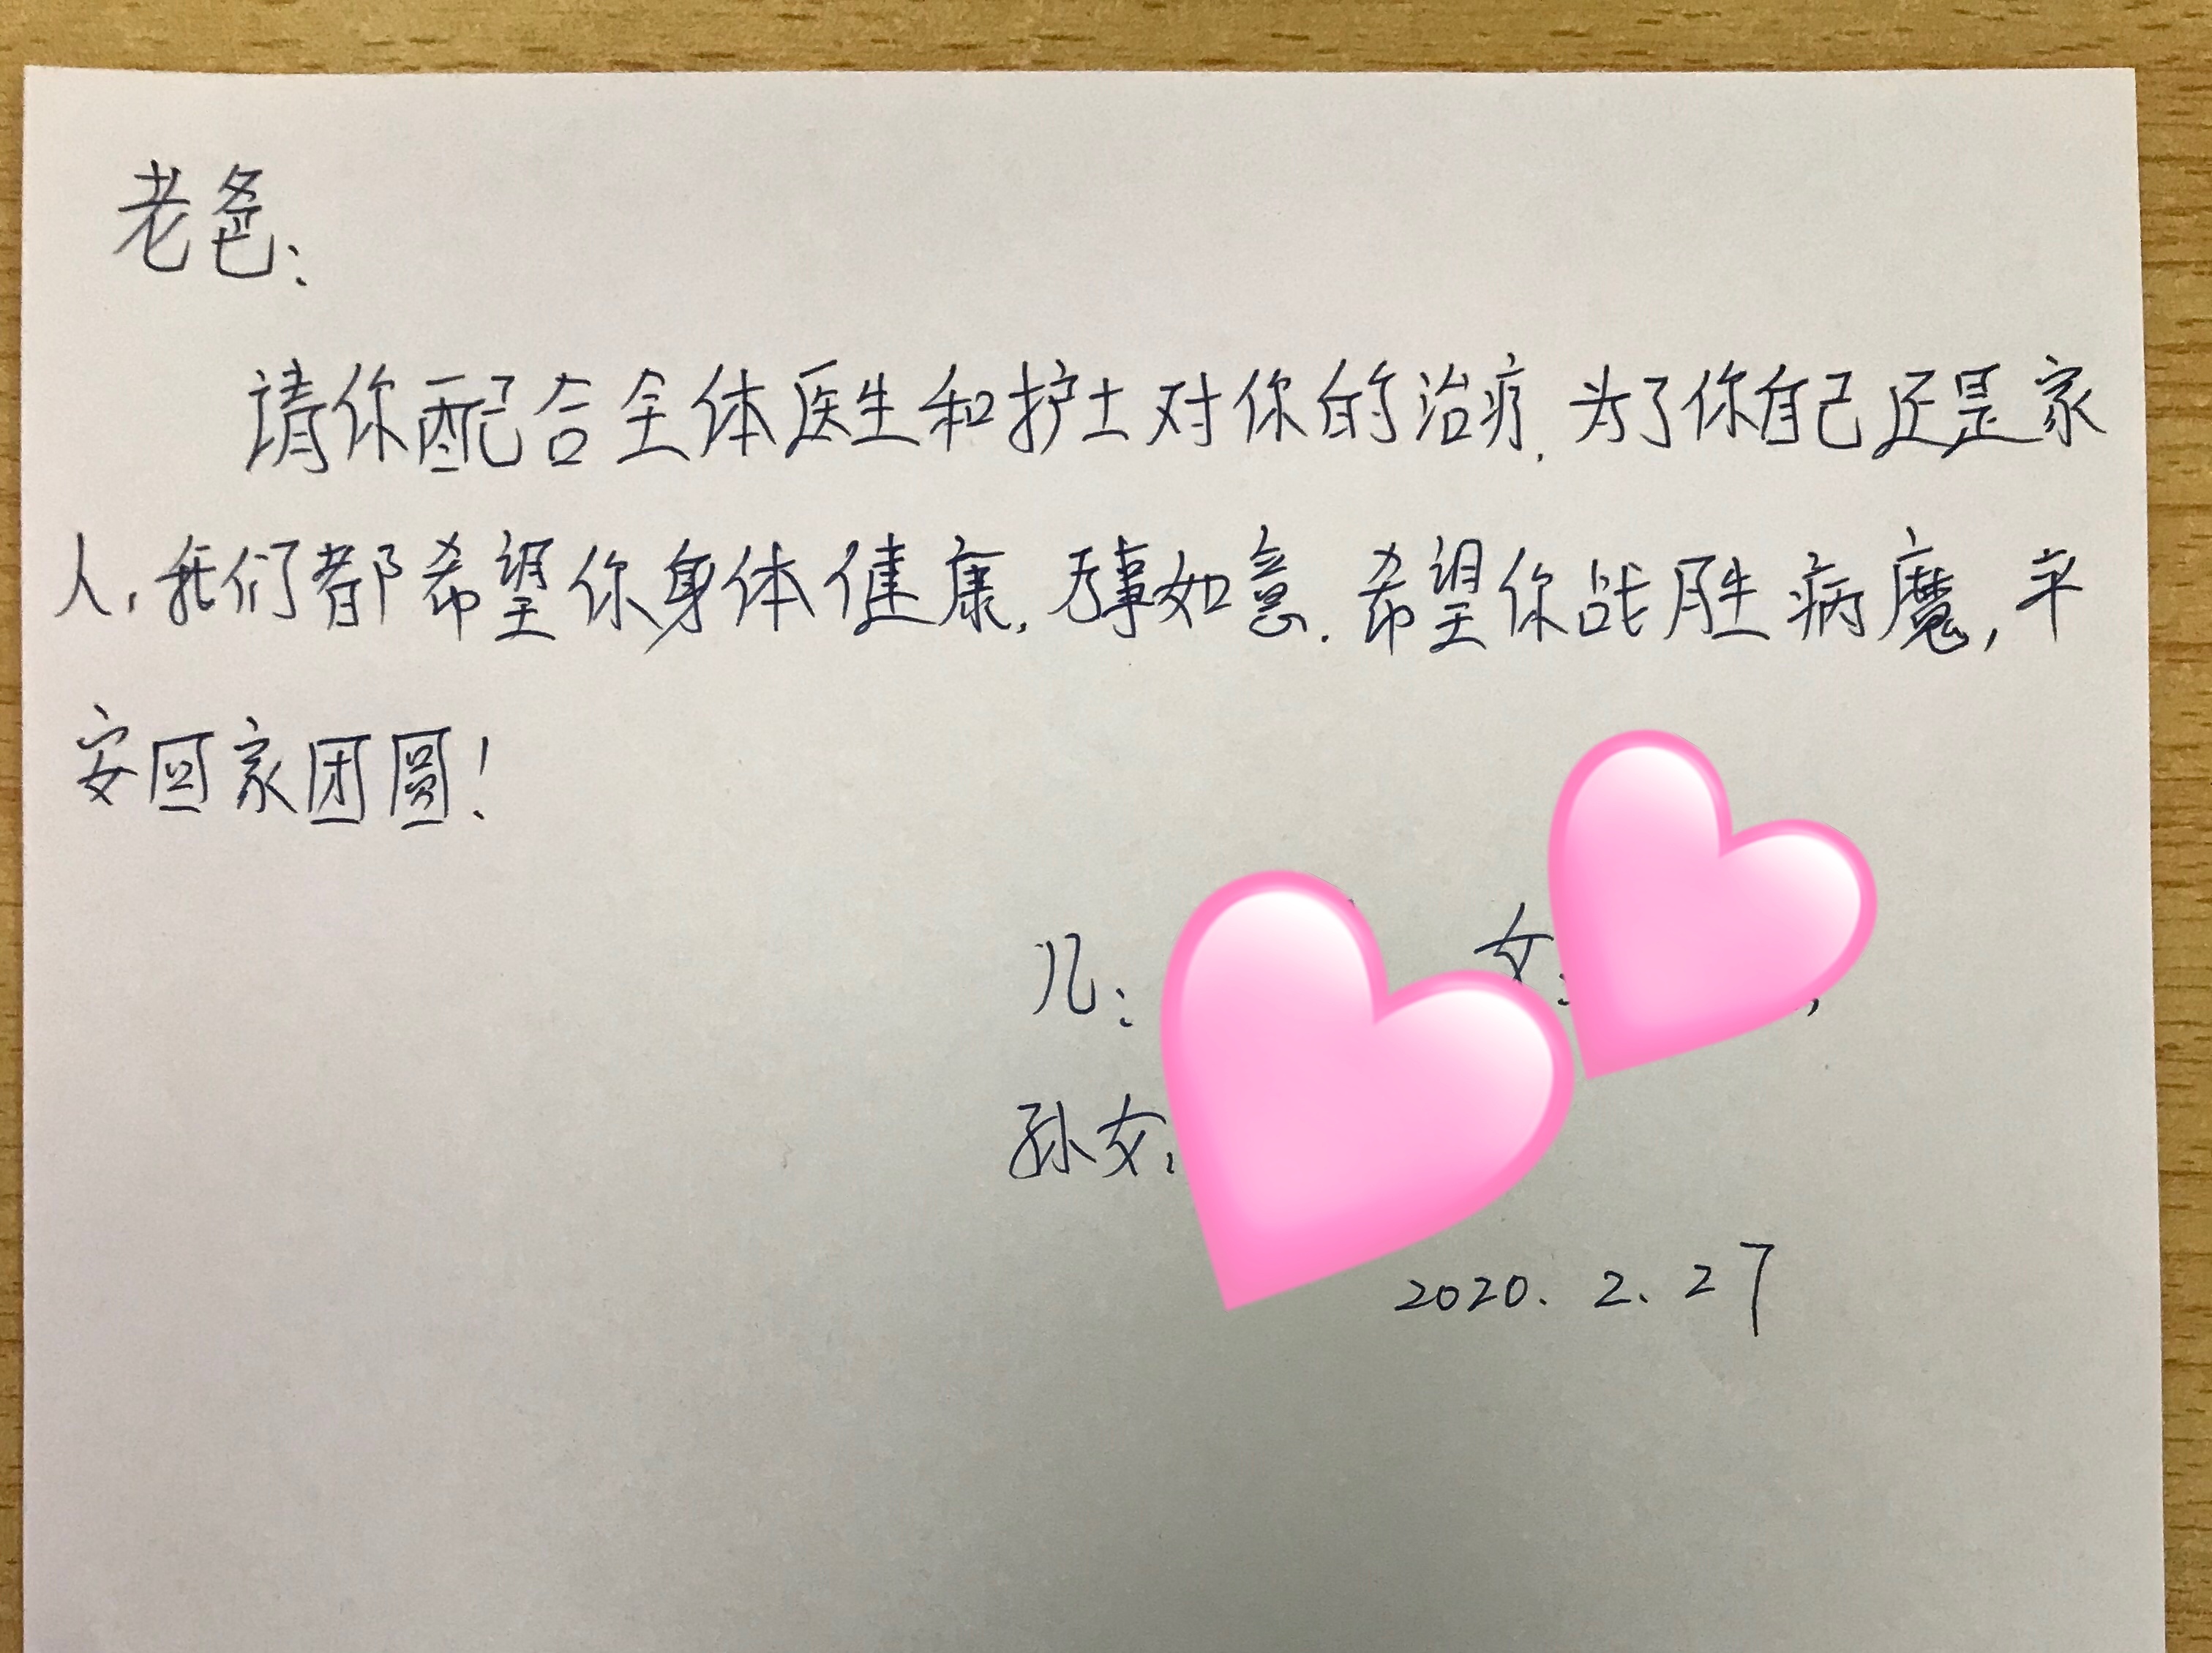 老爸:
请你配合全体医生和护士对你的治疗.为了你自己还是家
人,我们都希望你身体健康.万事如意.希望你战胜病魔,平
安回家团圆!
儿: 女:
孙女:
2020.2.27